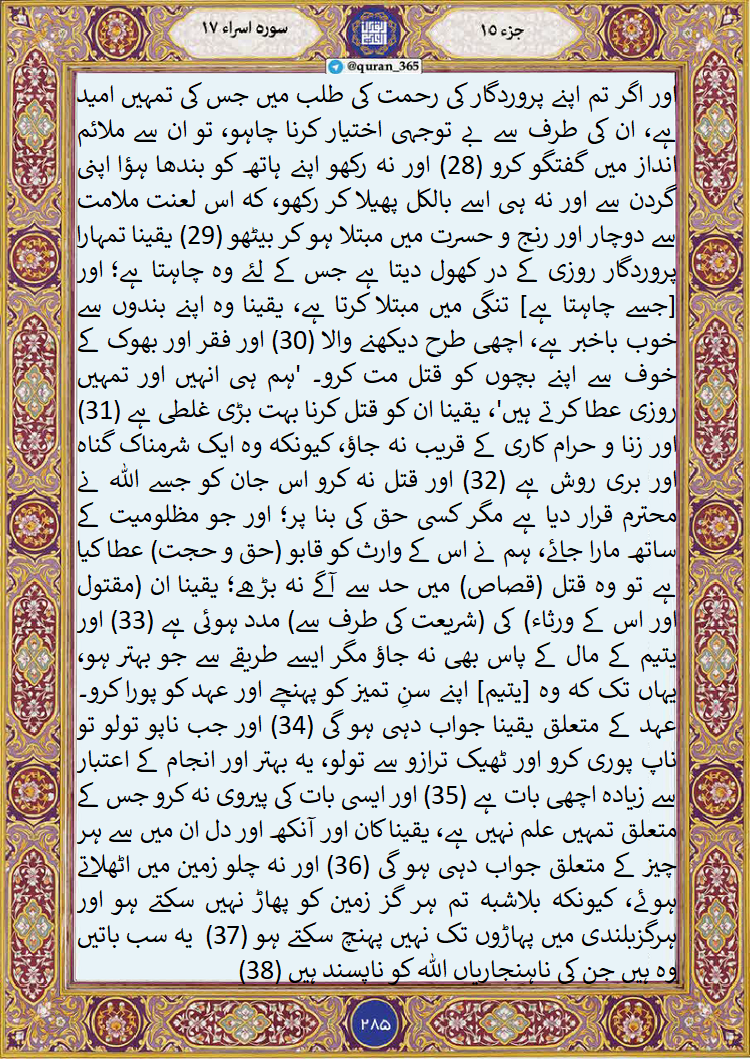 جزء ۱۵
سوره اسراء ۱۷
@quran_365
اور اگر تم اپنے پروردگار کی رحمت کی طلب میں جس کی تمہیں امید
ہے، ان کی طرف سے بے توجہی اختیار کرنا چاہو، تو ان سے ملائم
انداز میں گفتگو کرو (28) اور نہ رکھو اپنے ہاتھ کو بندھا ہؤا اپنی
گردن سے اور نہ ہی اسے بالکل پھیلا کر رکھو، کہ اس لعنت ملامت
سے دوچار اور رنج و حسرت میں مبتلا ہو کر بیٹھو (29) یقینا تمہارا
پروردگار روزی کے در کھول دیتا ہے جس کے لئے وہ چاہتا ہے؛ اور
[جسے چاہتا ہے] تنگی میں مبتلا کرتا ہے، یقینا وہ اپنے بندوں سے
خوب باخبر ہے، اچھی طرح دیکھنے والا (30) اور فقر اور بھوک کے
خوف سے اپنے بچوں کو قتل مت کرو۔ 'ہم ہی انہیں اور تمہیں
روزی عطا کرتے ہیں'، یقینا ان کو قتل کرنا بہت بڑی غلطی ہے (31)
اور زنا و حرام کاری کے قریب نہ جاؤ، کیونکہ وہ ایک شرمناک گناہ
اور بری روش ہے (32) اور قتل نہ کرو اس جان کو جسے اللہ نے
محترم قرار دیا ہے مگر کسی حق کی بنا پر؛ اور جو مظلومیت کے
ساتھ مارا جائے، ہم نے اس کے وارث کو قابو (حق و حجت) عطا کیا
ہے تو وہ قتل (قصاص) میں حد سے آگے نہ بڑھے؛ یقینا ان (مقتول
اور اس کے ورثاء) کی (شریعت کی طرف سے) مدد ہوئی ہے (33) اور
یتیم کے مال کے پاس بھی نہ جاؤ مگر ایسے طریقے سے جو بہتر ہو،
یہاں تک کہ وہ [یتیم] اپنے سنِ تمیز کو پہنچے اور عہد کو پورا کرو۔
عہد کے متعلق یقینا جواب دہی ہو گی (34) اور جب ناپو تولو تو
ناپ پوری کرو اور ٹھیک ترازو سے تولو، یہ بہتر اور انجام کے اعتبار
سے زیادہ اچھی بات ہے (35) اور ایسی بات کی پیروی نہ کرو جس کے
متعلق تمہیں علم نہیں ہے، یقینا کان اور آنکھ اور دل ان میں سے ہر
چیز کے متعلق جواب دہی ہو گی (36) اور نہ چلو زمین میں اٹھلاتے
ہوئے، کیونکہ بلاشبہ تم ہر گز زمین کو پھاڑ نہیں سکتے ہو اور
ہرگزبلندی میں پہاڑوں تک نہیں پہنچ سکتے ہو (37) یہ سب باتیں
وہ ہیں جن کی ناہنجاریاں اللہ کو ناپسند ہیں (38)
۲۸۵